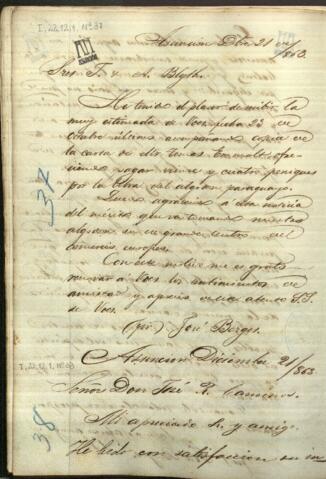 I,22,12,1, Nº 37
Asuncion Dbre 21 de
1863.
Sres. J. & A. Blyth.
He tenido el placer de recibir la
muy estimada de Vces fecha 23 de
Octubre último acompañando copia de
la carta de
pagar veinte y cuatro peniques
por la libra del algodon paraguayo.
Quedo agradecido á esta noticia
del mérito que va tomando nuestro
algodon en ese grande centro del
comercio europeo.
Con este motivo me es grato
renovar á Vces los sentimientos de
aprecio atento S.S.
de Vces.
(fir.) José Berges.
37
I,22,12,1, Nº 38
Asuncion Diciembre 21/863
Señor Don José R. Caminos.
Mi apreciado Sr. y amigo.
38
He leido con satisfaccion su in